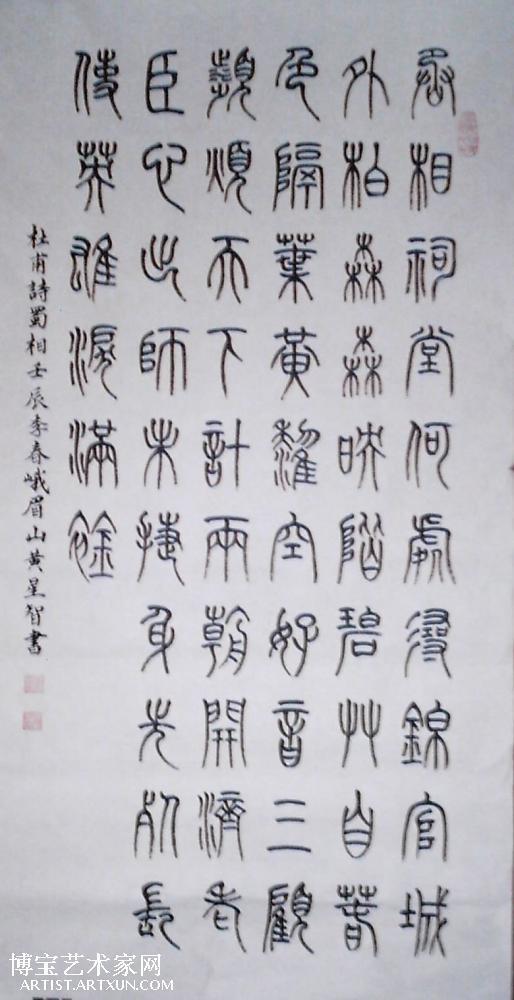 丞相祠堂何處尋錦官城
外柏森森映階碧艸自春
色隔葉黃鸝空好音三顧
頻煩天下計兩朝開濟老
臣心出師未捷身先死長
使英雄淚滿襟
杜甫詩蜀相壬辰季春峨眉山黃星智書
博宝艺术家网
ARTIST.ARTXUN.COM